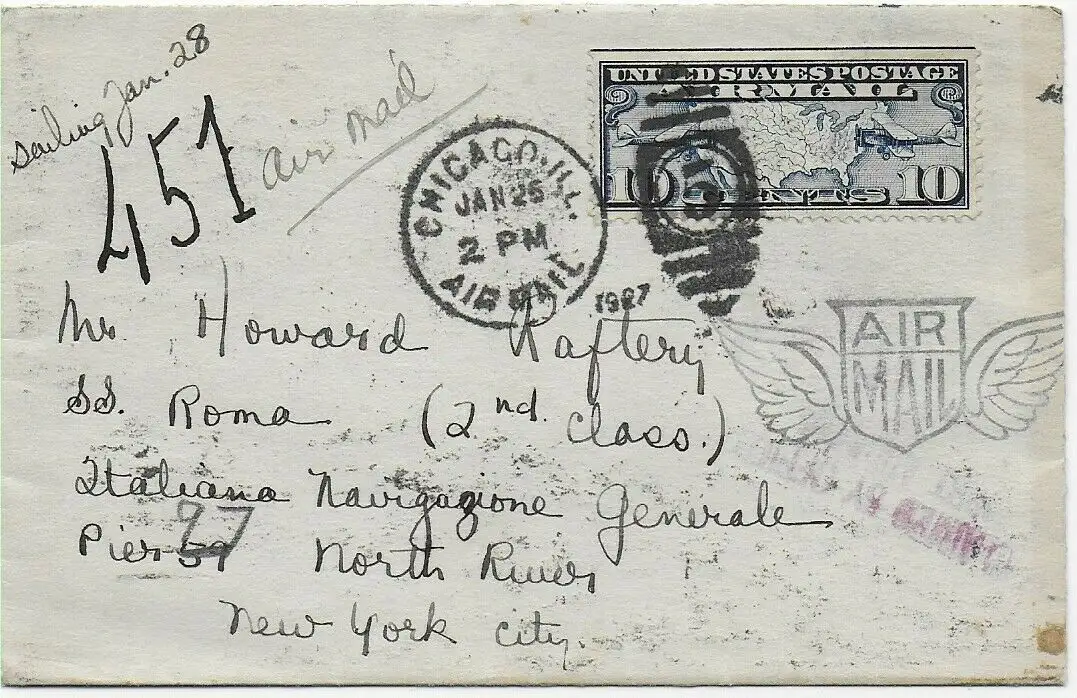 Sailing Jan. 28
451
Air Mail
CHICAGO, ILL.
JAN 26
2 PM
AIR MAIL
1927
UNITED STATES POSTAGE
AIR MAIL
10 CENTS 10
Mr Howard Raftery
SS. Roma (2nd. Class.)
Italiana Navigazione Generale
Pier 59 97 North River
New York City.
AIR
MAIL